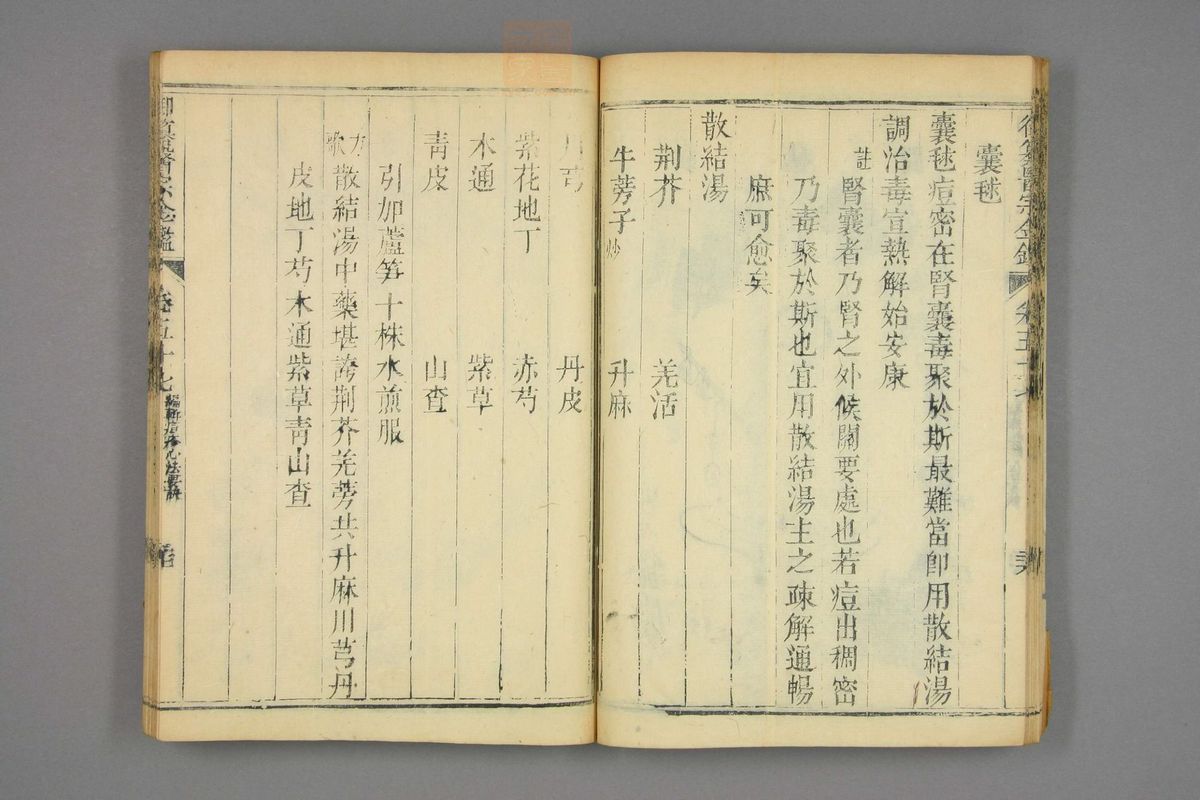 囊毬
囊毬痘密在腎囊毒聚於斯最難當卽用散結湯
調治毒宣熱解始安康
註腎囊者乃腎之外候關要處也若痘出稠密
乃毒聚於斯也宜用散結湯主之疎解通暢
庶可愈矣
散結湯
荆芥 羌活
牛蒡子炒 升麻
川芎 丹皮
紫花地丁 赤芍
木通 紫草
青皮 山查
引加蘆笋十株水煎服
方歌散結湯中藥堪誇荆芥羌蒡共升麻川芎丹
皮地丁芍木通紫草青山查
御纂醫宗金鑑 卷五十七 編輯痘疹心法要訣